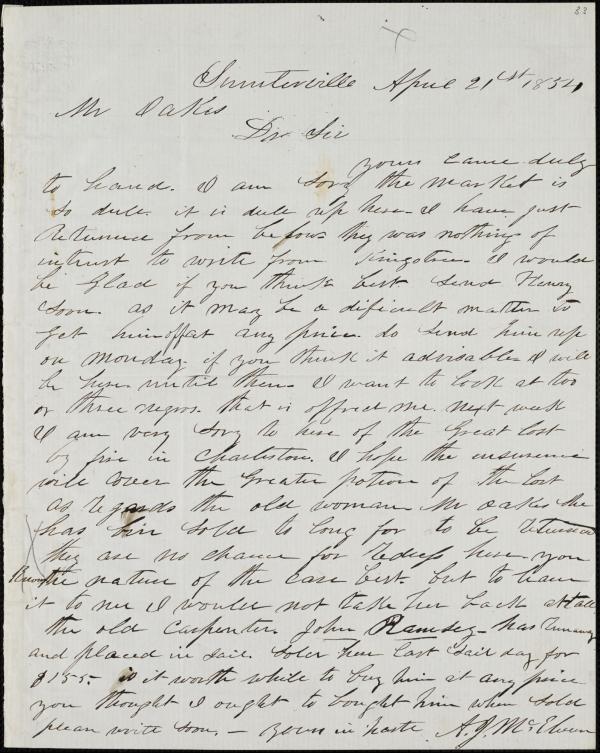 83
Sumterville April 21st 1854
Mr Oakes
Dr Sir
yours came duly
to hand. I am sory the market is
so dull. it is dull up here. I have just
returned from below they was nothing of
intrust to write from Kingstree. I would
be Glad if you think best send Henry
soon. as it may be a dificult matter to
get him off at any price. do send him up
on Monday. if you think it advisable I will
be here until then. I want to look at too
or three negros. that is offred me. next week
I am very sory to here of the Great lost
by fire in Charleston. I hope the insurence
will cover the Greater potion of the lost
as regards the old woman Mr Oakes she
has bin sold to long for to be returned
they are no chance for redress here. you
know the nature of the case best. but to leave
it to me I would not take her back at all
the old carpenter John Ramsey has runaway
and placed in jail. sold here last sail day for
$155. is it worth while to buy him at any price
you thought I ought to bought him when sold
please write soon. – yours in haste A. J. McElveen